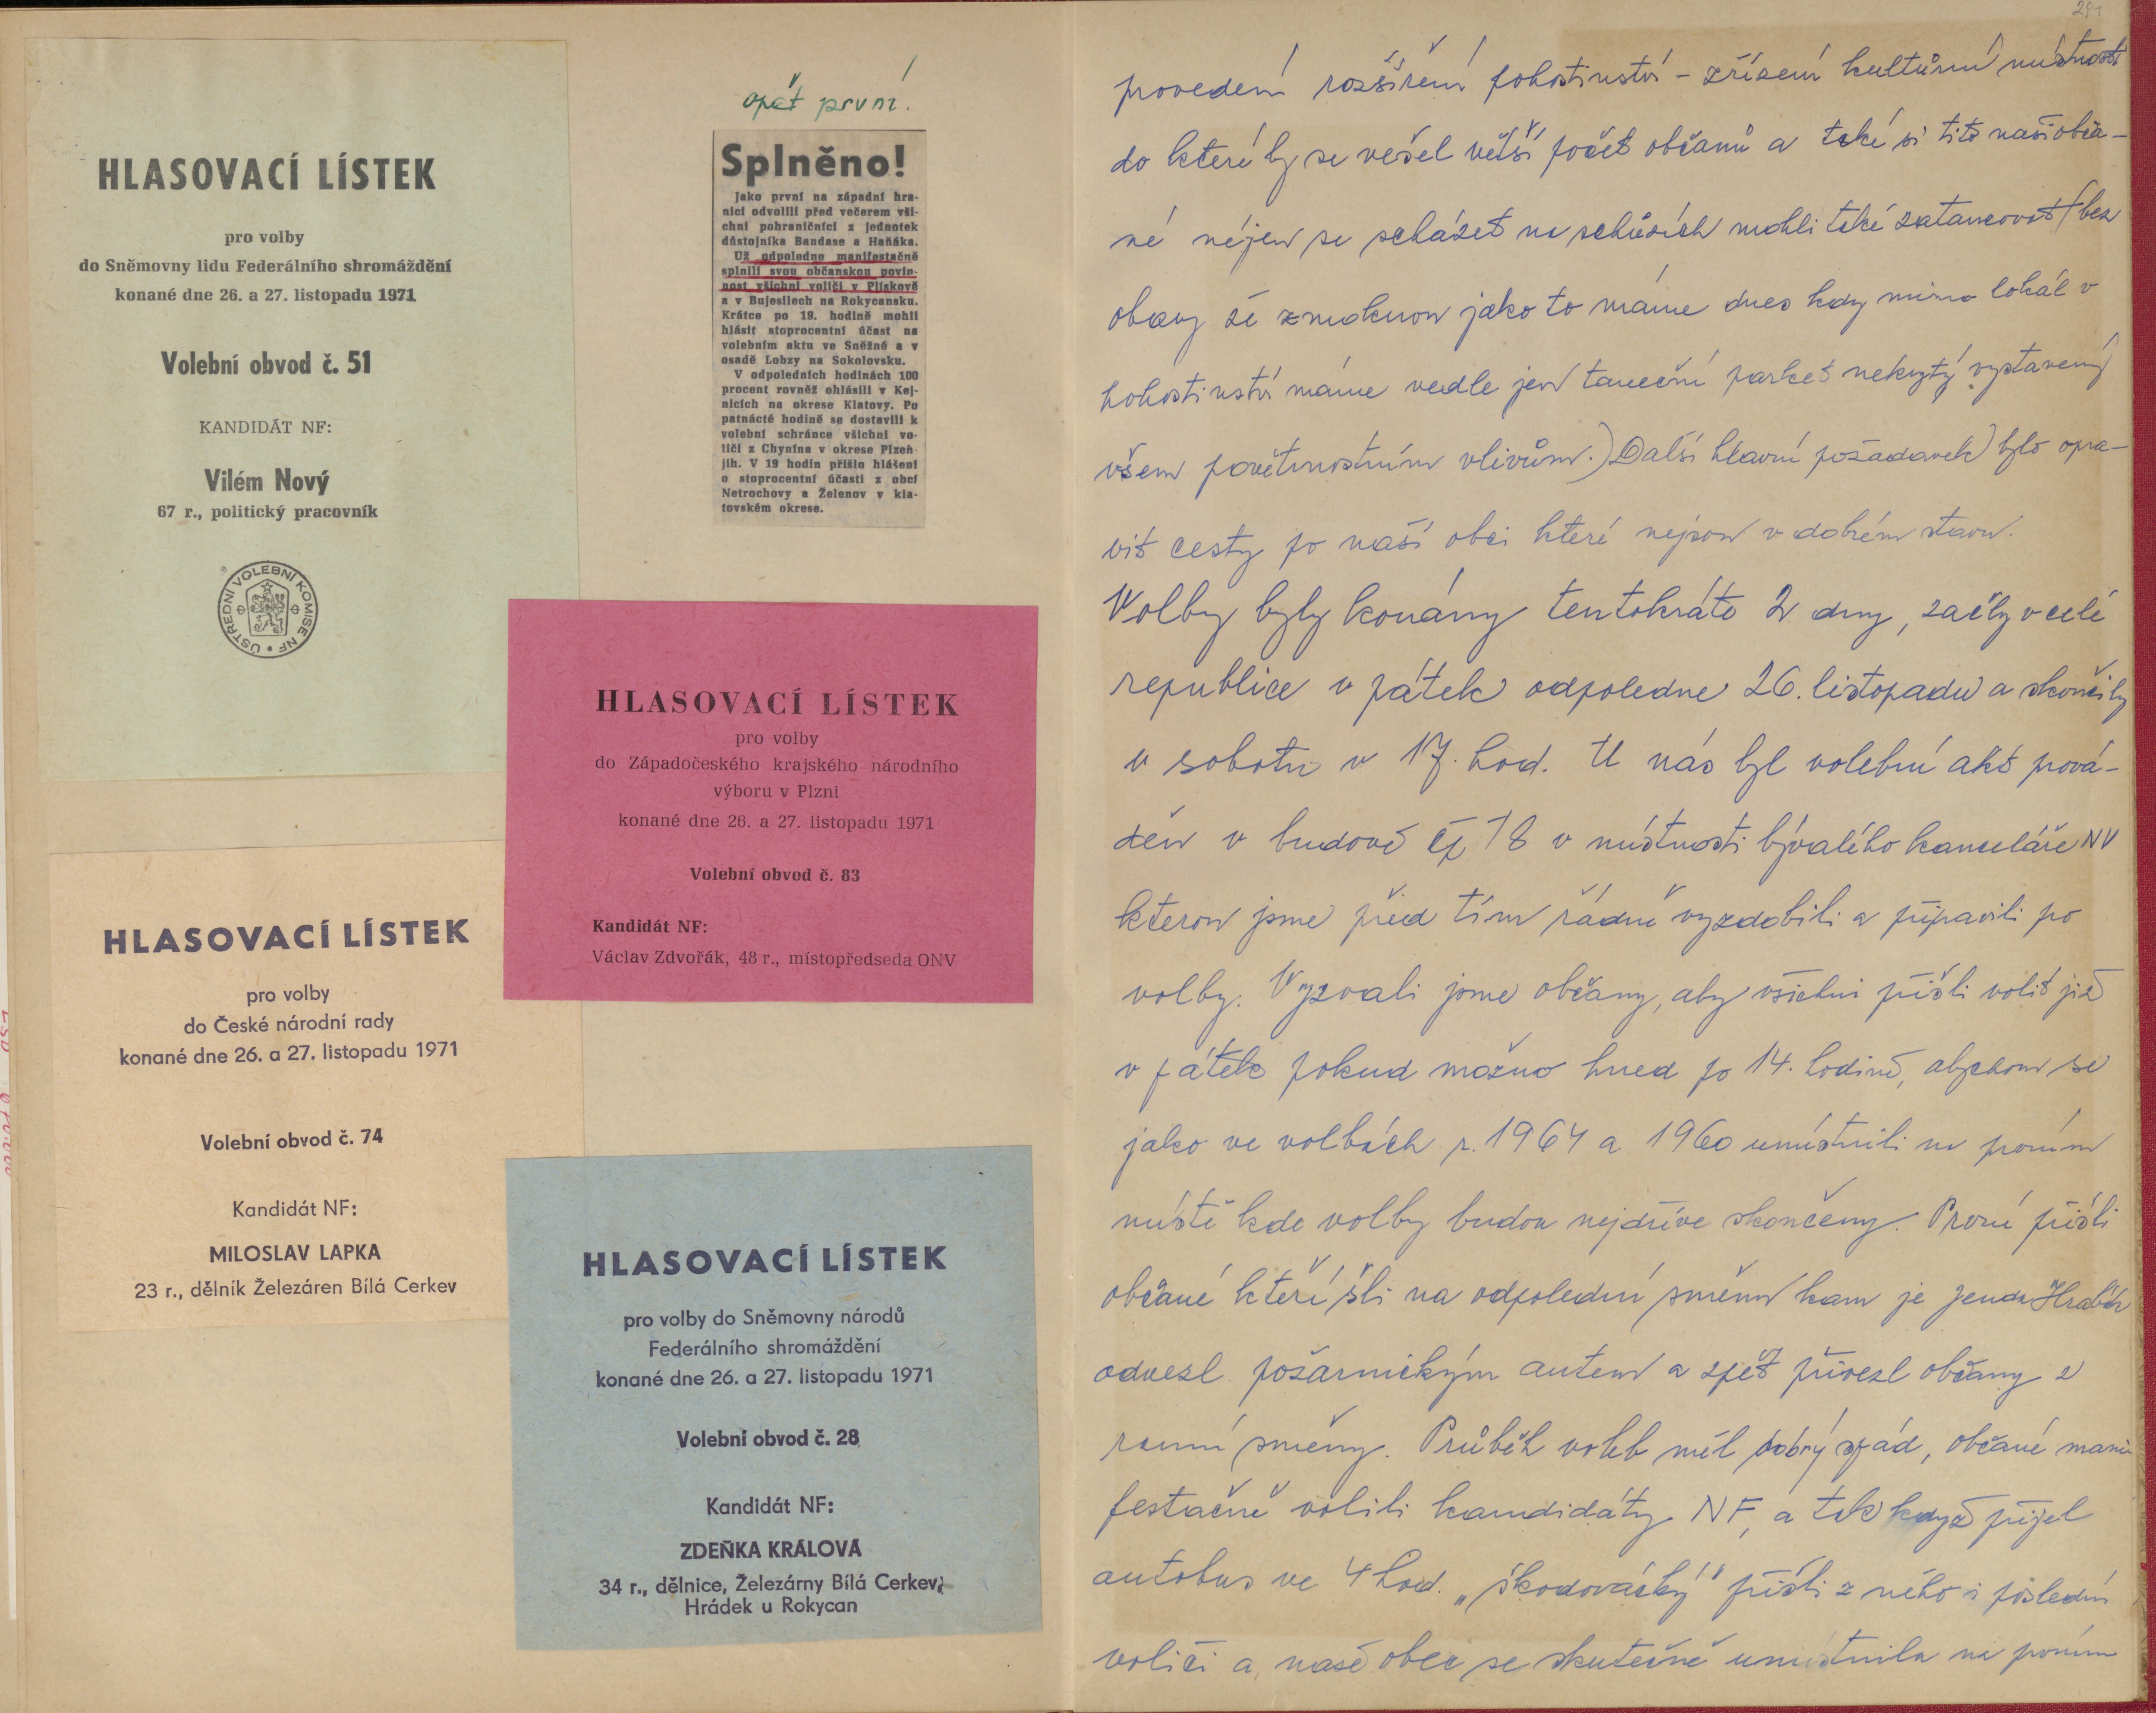 HLASOVACÍ LÍSTEK
pro volby
do Sněmovny lidu Federálního shromáždění
konané dne 26. a 27. listopadu 1971
Volební obvod č. 51
KANDIDÁT NF:
Vilém Nový
67 r., politický pracovník
ÚSTŘEDNÍ VOLEBNÍ KOMISE NF
HLASOVACÍ LÍSTEK
pro volby
do České národní rady
konané dne 26. a 27. listopadu 1971
Volební obvod č. 74
Kandidát NF:
MILOSLAV LAPKA
23 r., dělník Železáren Bílá Cerkev
opět první.
Splněno!
Jako první na západní hra-
nici odvolili před večerem vši-
chni pohraničníci z jednotek
důstojníka Bandase a Haňáka.
Už odpoledne manifestačně
splnili svou občanskou povin-
nost všichni voliči v Plískově
a v Bujesilech na Rokycansku.
Krátce po 19. hodině mohli
hlásit stoprocentní účast na
volebním aktu ve Sněžné a v
osadě Lobzy na Sokolovsku.
V odpoledních hodinách 100
procent rovněž ohlásili v Kej-
nicích na okrese Klatovy. Po
patnácté hodině se dostavili k
volební schránce všichni vo-
liči z Chynína v okrese Plzeň-
jih. V 19 hodin přišlo hlášení
o stoprocentní účasti z obcí
Netrochovy a Želenov v kla-
tovském okrese.
HLASOVACÍ LÍSTEK
pro volby
do Západočeského krajského národního
výboru v Plzni
konané dne 26. a 27. listopadu 1971
Volební obvod č. 83
Kandidát NF:
Václav Zdvořák, 48 r., místopředseda ONV
HLASOVACÍ LÍSTEK
pro volby do Sněmovny národů
Federálního shromáždění
konané dne 26. a 27. listopadu 1971
Volební obvod č. 28
Kandidát NF:
ZDEŇKA KRÁLOVÁ
34 r., dělnice, Železárny Bílá Cerkev,
Hrádek u Rokycan
291
provedení rozšíření pohostinství - zřízení kulturní místnosti
do které by se vešel větší počet občanů a také si tito naši obča-
né nejen se scházet na schůzích mohli také zatancovat (bez
obavy že zmoknou jako to máme dnes kdy mimo lokál v
hohostinství máme vedle jen taneční parket nekrytý vystavený
všem povětrnostním vlivům.) Další hlavní požadavek bylo opra-
vit cesty po naší obci které nejsou v dobrém stavu.
Volby byly konány tentokráte 2 dny, začly v celé
republice v pátek odpoledne 26. listopadu a skončily
v sobotu v 17. hod. U nás byl volební akt prová-
děn v budově čp 18 v místnosti bývalého kanceláře NV
kterou jsme před tím řádně vyzdobili a připavili po
volby. Vyzvali jsme občany, aby všichni přišli volit již
v pátek pokud možno hned po 14. hodině, abychom se
jako ve volbách r. 1964 a 1960 umístnili na prvním
místě kde volby budou nejdříve skončeny. První přišli
občané kteří šli na odpolední směnu kam je Jenda Hrabák
odvezl požárnickým autem a zpět přivezl občany z
ranní směny. Průběh voleb měl dobrý spád, občané mani-
festačně volili kandidáty NF, a tak když přijel
autobus ve 4 hod. „škodovácký" přišli z něho i poslední
voliči a naše obec se skutečně umístnila na prvním